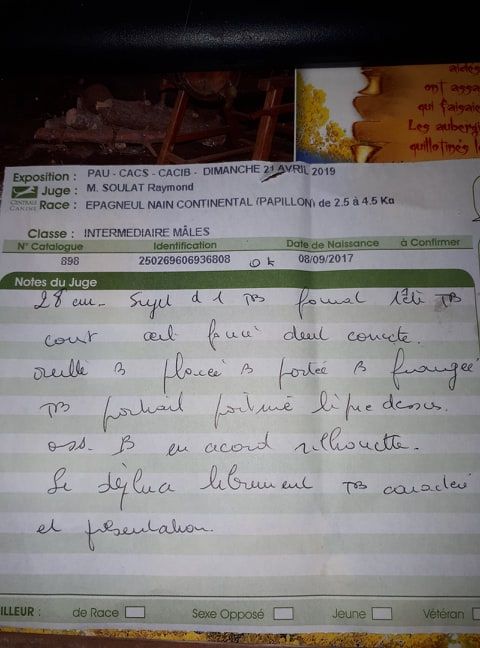 aidés
ont assa
qui faisaie
Les auberg
guillotinés l
Exposition : PAU - CACS - CACIB - DIMANCHE 21 AVRIL 2019
Juge : M. SOULAT Raymond
CENTRALE CANINE
Race : EPAGNEUL NAIN CONTINENTAL (PAPILLON) de 2.5 à 4.5 Kg
Classe : INTERMEDIAIRE MÂLES
N° Catalogue Identification Date de Naissance à Confirmer
898 250269606936808 ok 08/09/2017
Notes du Juge
28 cm. Sujet d 1 TB format tête TB
court œil foncé dent correcte.
oreille B placée B portée B frangée
TB poitrail poitrine ligne dessus.
oss. B en acord silhouette.
Se déplace librement TB caractère
et présentation.
ILLEUR : de Race Sexe Opposé Jeune Vétéran